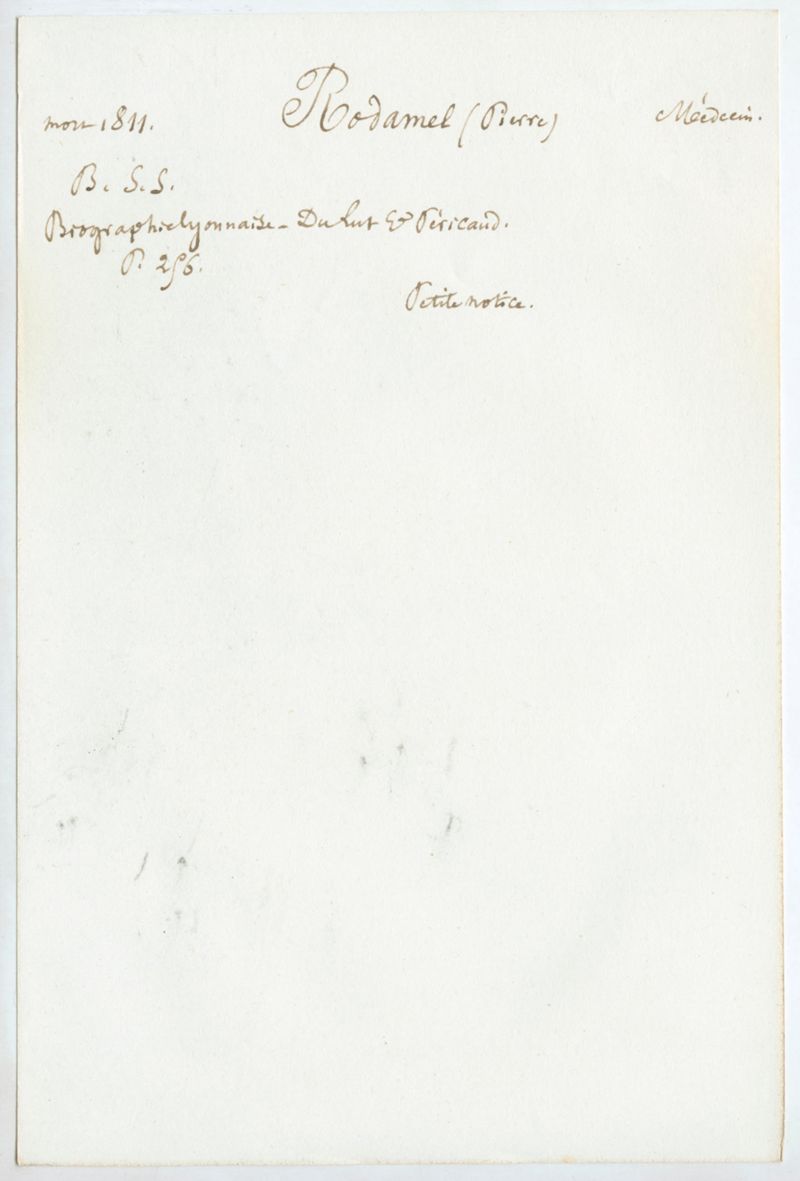 mort 1811. Rodamel (Pierre) Médecin.
B. S. S.
Biographie lyonnaise - Du Lut & Péricaud.
P. 256.
Petite notice.